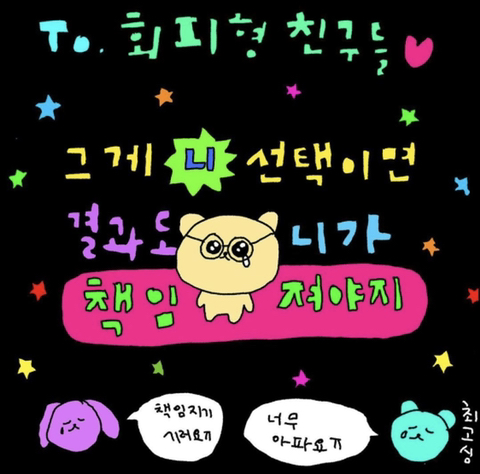 To. 회피형 친구들
그게 니 선택이면
결과도 니가
책임 져야지
책임지기
시러요ㅠ
너무
아파요ㅠ
최고심